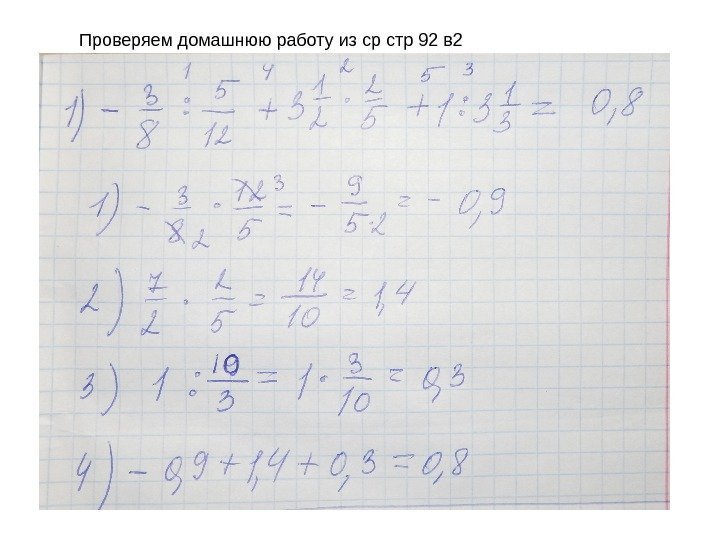 Проверяем домашнюю работу из ср стр 92 в2
1 4 2 5 3
1) - 3/8 : 5/12 + 3 1/2 · 2/5 + 1 : 3 1/3 = 0,8
1) - 3/8 2 · 12/5 3 = - 9/5·2 = - 0,9
2) 7/2 · 2/5 = 14/10 = 1,4
3) 1 : 10/3 = 1 · 3/10 = 0,3
4) - 0,9 + 1,4 + 0,3 = 0,8